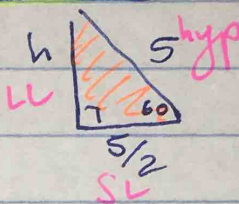 h 5 hyp
LL 60
5/2
SL